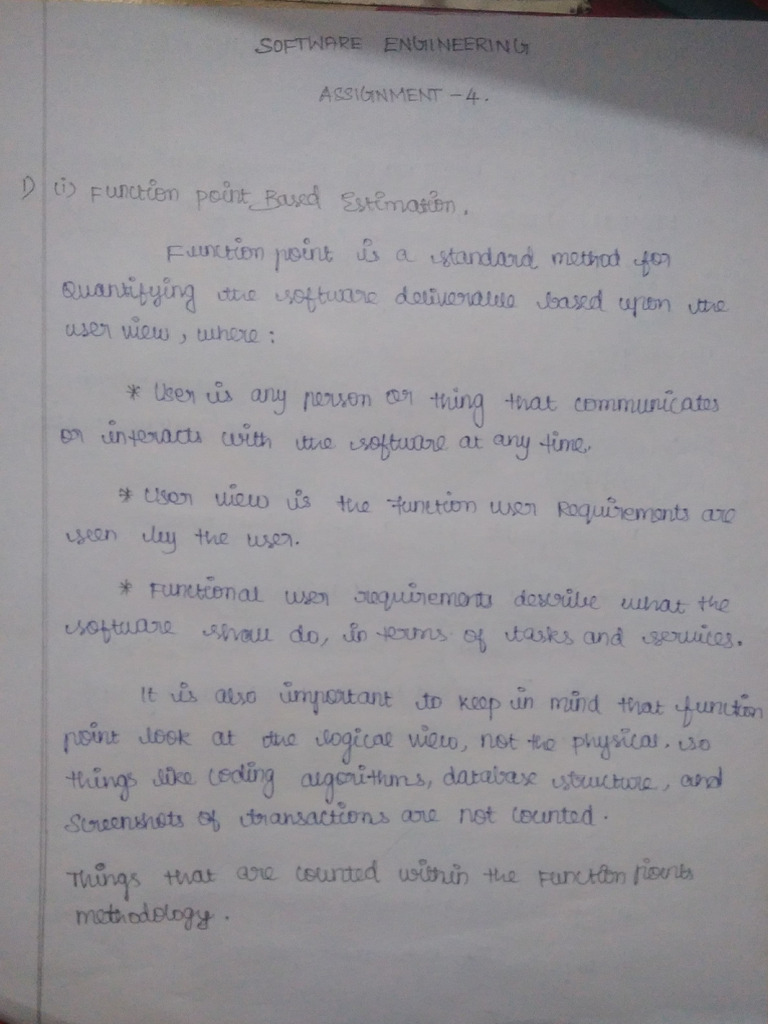 SOFTWARE ENGINEERING
ASSIGNMENT - 4.
1) (i) Function point Based Estimation.
Function point is a standard method for
Quantifying the software deliverable based upon the
user view, where:
* User is any person or thing that communicates
or interacts with the software at any time.
* User view is the Function user Requirements are
seen by the user.
* Functional user requirements describe what the
software shall do, in terms of tasks and services.
It is also important to keep in mind that function
point look at the logical view, not the physical. so
things like coding algorithms, database structure, and
Screenshots of transactions are not counted.
Things that are counted within the Function points
methodology.